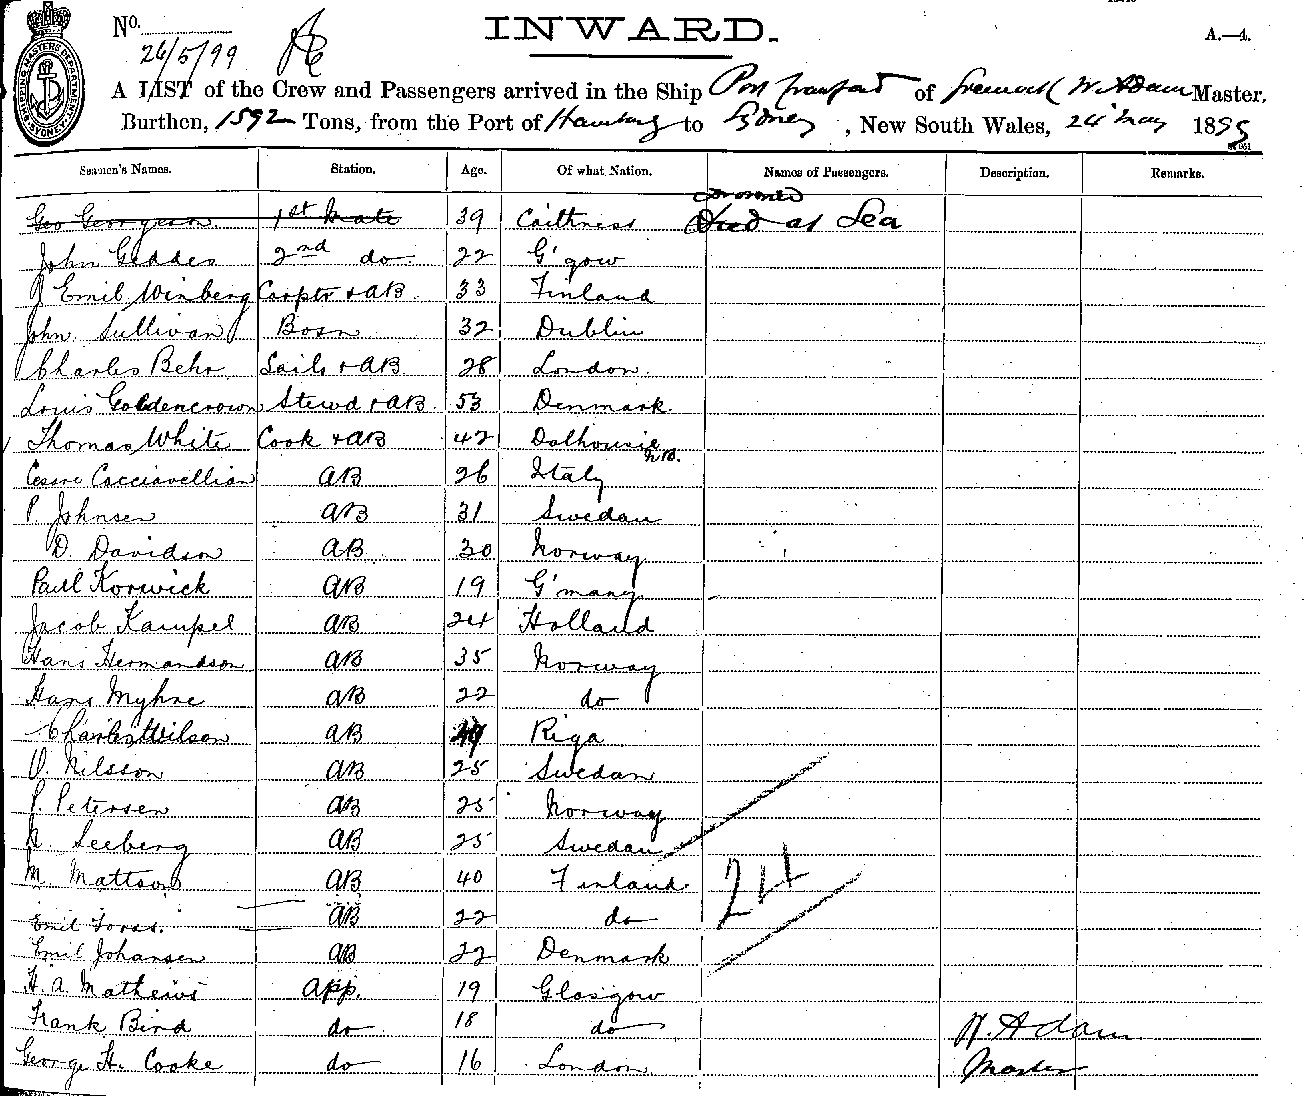 No. 26/5/99
INWARD.
A.—4.
A LIST of the Crew and Passengers arrived in the Ship Port Crawford of Greenock W. Adam Master,
Burthen, 1592 Tons, from the Port of Hamburg to Sydney, New South Wales, 24 May 1899
Seamen's Names. Station. Age. Of what Nation. Names of Passengers. Description. Remarks.
drowned
Geo Georgeson 1st Mate 39 Caithness Died at Sea
John Geddes 2nd do 22 G'gow
J Emil Winberg Carptr + AB 33 Finland
John Sullivan Bosn 32 Dublin
Charles Behr Sails + AB 28 London
Louis Goldencrown Stewd + AB 53 Denmark
Thomas White Cook + AB 42 Dalhousie N.B.
Cesare Cacciavellian AB 26 Italy
P. Johnsen AB 31 Swedan
D. Davidson AB 30 Norway
Paul Korwick AB 19 G'many
Jacob Kampel AB 24 Holland
Hans Hermandson AB 35 Norway
Hans Myhre AB 22 do
Charles Wilson AB Riga
O. Nilsson AB 25 Swedan
P. Petersen AB 25 Norway
Seeberg AB 25 Swedan
M. Mattson AB 40 Finland
24
Emil Forss. AB 22 do
Emil Johansen AB 22 Denmark
H. A. Mathews App. 19 Glasgow
Frank Bird do 18 do W. Adam
George H. Cooke do 16 London Master